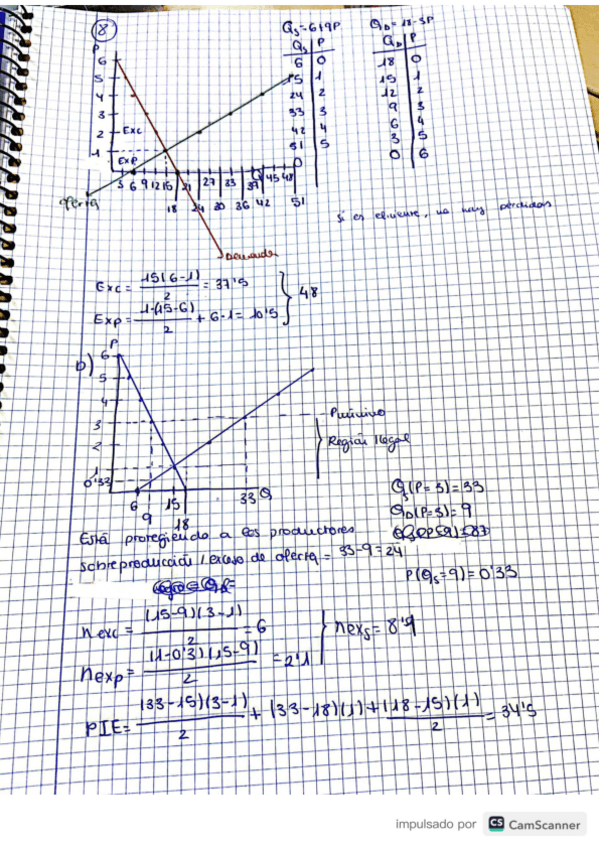 8
Qs=6+9P
QD=18-3P
Qs P
6 0
15 1
24 2
33 3
42 4
51 5
QD P
18 0
15 1
12 2
9 3
6 4
3 5
0 6
P
6
5
4
3
2
1
Exc
Exp
3 6 9 12 15 21 27 33 39 45 48
18 24 30 36 42 51
oferta
Demanda
si es eficiente, no hay pérdidas
Exc = 15(6-1)/2 = 37'5
Exp = 1·(15-6)/2 + 6·1 = 10'5
} 48
b)
P
6
5
4
3
2
1
0'33
6 15 33 Q
9 18
Pmínimo
Región Ilegal
Qs(P=3)=33
QD(P=3)=9
P(Qs=9)=0'33
Está protegiendo a los productores
sobreproducción / exceso de oferta = 33-9=24
nexc = (15-9)(3-1)/2 = 6
nexp = (1-0'3)(15-9)/2 = 2'1
} nexs = 8'1
PIE = (33-15)(3-1)/2 + (33-18)(1) + (18-15)(1)/2 = 34'5
impulsado por CS CamScanner